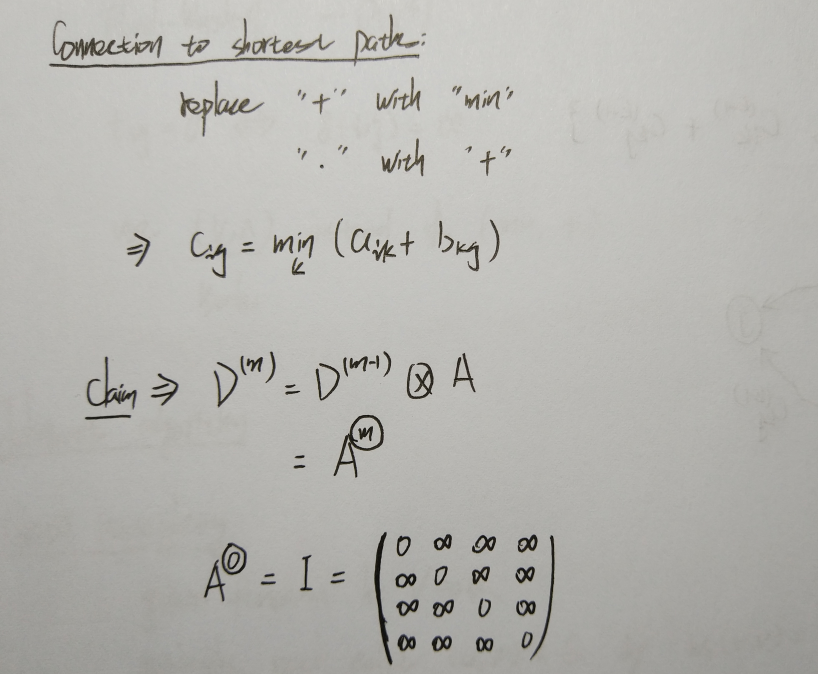 Connection to shortest path:
replace "+" with "min"
"." with "+"
⇒ Cij = min k (aik + bkj)
Claim ⇒ D^(m) = D^(m-1) ⊗ A
= A^ⓜ
A^⓪ = I = ( 0 ∞ ∞ ∞
∞ 0 ∞ ∞
∞ ∞ 0 ∞
∞ ∞ ∞ 0 )